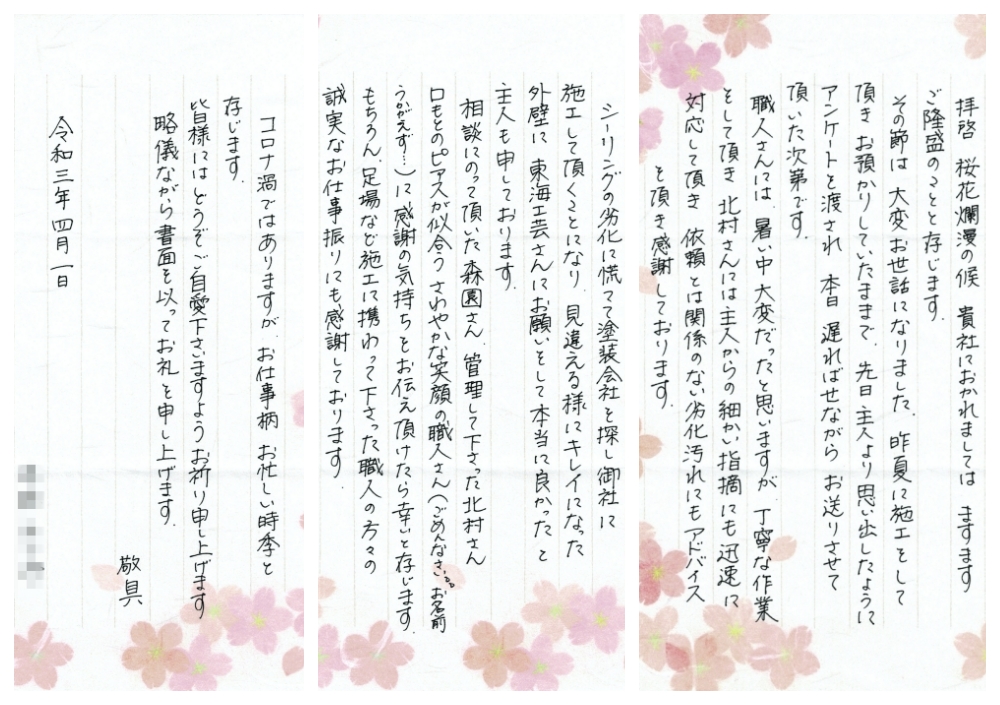 拝啓 桜花爛漫の候 貴社におかれましては ますます
ご隆盛のことと存じます。
その節は 大変お世話になりました。昨夏に施工をして
頂き お預かりしていたままで、先日主人より思い出したように
アンケートを渡され 本日 遅ればせながら お送りさせて
頂いた次第です。
職人さんには、暑い中大変だったと思いますが、丁寧な作業
をして頂き 北村さんには主人からの細かい指摘にも迅速に
対応して頂き 依頼とは関係のない劣化汚れにもアドバイス
を頂き感謝しております。
シーリングの劣化に慌てて塗装会社を探し御社に
施工して頂くことになり、見違える様にキレイになった
外壁に 東海工芸さんにお願いをして本当に良かったと
主人も申しております。
相談にのって頂いた森園さん、管理して下さった北村さん
口もとのピアスが似合う さわやかな笑顔の職人さん(ごめんなさい。。お名前
うかがえず…)に感謝の気持ちをお伝え頂けたら幸いと存じます。
もちろん、足場など施工に携わって下さった職人の方々の
誠実なお仕事振りにも感謝しております。
コロナ渦ではありますが、お仕事柄 お忙しい時季と
存じます。
皆様にはどうぞご自愛下さいますようお祈り申し上げます
略儀ながら書面を以ってお礼を申し上げます。
敬具
令和三年四月一日